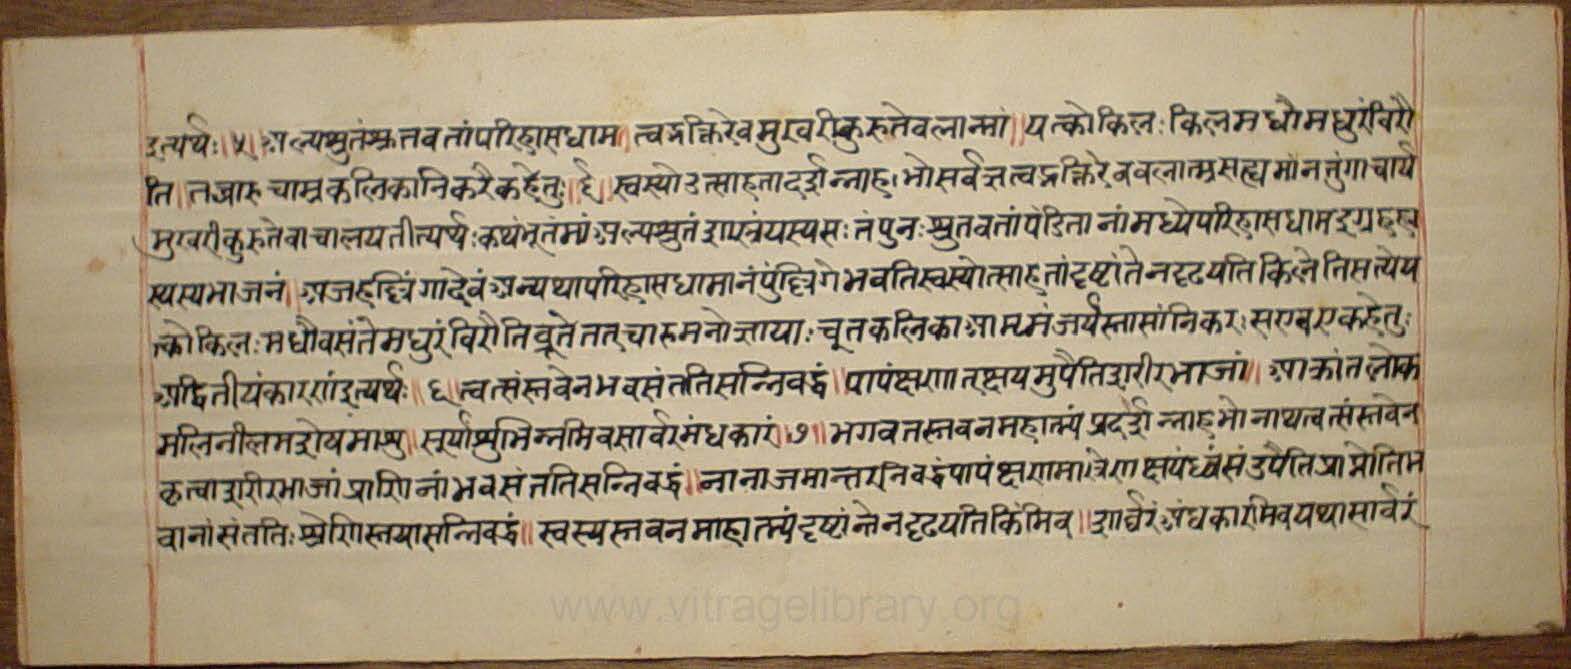 इत्यर्थः ॥५॥ अल्पश्रुतंश्रुतवतांपरिहासधाम ॥ त्वद्भक्तिरेवमुखरीकुरुतेवलान्मां ॥ यत्कोकिलः किलमधौमधुरंविरौ
ति ॥ तच्चारुचाम्रकलिकानिकरैकहेतुः ॥६॥ स्वस्योउत्साहतादर्शन्नाह । भोसर्वज्ञत्वद्भक्तिरेववलात्प्रसह्यमांनतुंगाचार्य
मुखरीकुरुतेवाचालयतीत्यर्थः कथंभूतंम्मंअल्पश्रुतंशास्त्रंयस्यसः तंपुनः श्रुतवतांपंडितानांमध्येपरिहासधाम
स्यस्यभाजनं ॥ अजहल्लिंगादेवंअन्यथापरिहासधामानंपुंल्लिंगेभवतिस्वस्योत्साहतांदृष्टांतेनदृढयतिकिलेतिसत्येय
त्कोकिलः मधौवसंतेमधुरंविरौतिव्रूतेतत्चारुमनोज्ञायाः चूतकलिकाआम्रमंजर्यस्तासांनिकरः सएवएकहेतुः
अद्वितीयंकारणंइत्यर्थः ॥६॥ त्वत्संस्तवेनभवसंततिसन्निवद्धं ॥ पापंक्षणात्क्षयमुपैतिशरीरभाजां ॥ आक्रांतलोक
मलिनीलमशेषमाशु ॥ सूर्यांशुभिन्नमिवसार्वरमंधकारं ॥७॥ भगवतस्तवनमहात्म्यंप्रदर्शन्नाहभोनाथत्वत्संस्तवेन
कृत्वाशरीरभाजांप्राणिनांभवसंततिसन्निवद्धं ॥ नानाजमान्तरनिवद्धंपापंक्षणमात्रेणक्षयंध्वंसंउपैतिप्राप्नोतिभ
वानांसंततिः श्रेणिस्तयासन्निवद्धं ॥ स्वस्यस्तवनमाहात्म्यंदृष्टांन्तेनदृढयतिकिंमिव ॥ शार्वरंअंधकारमिवयथासार्वरं
www.vitragelibrary.org